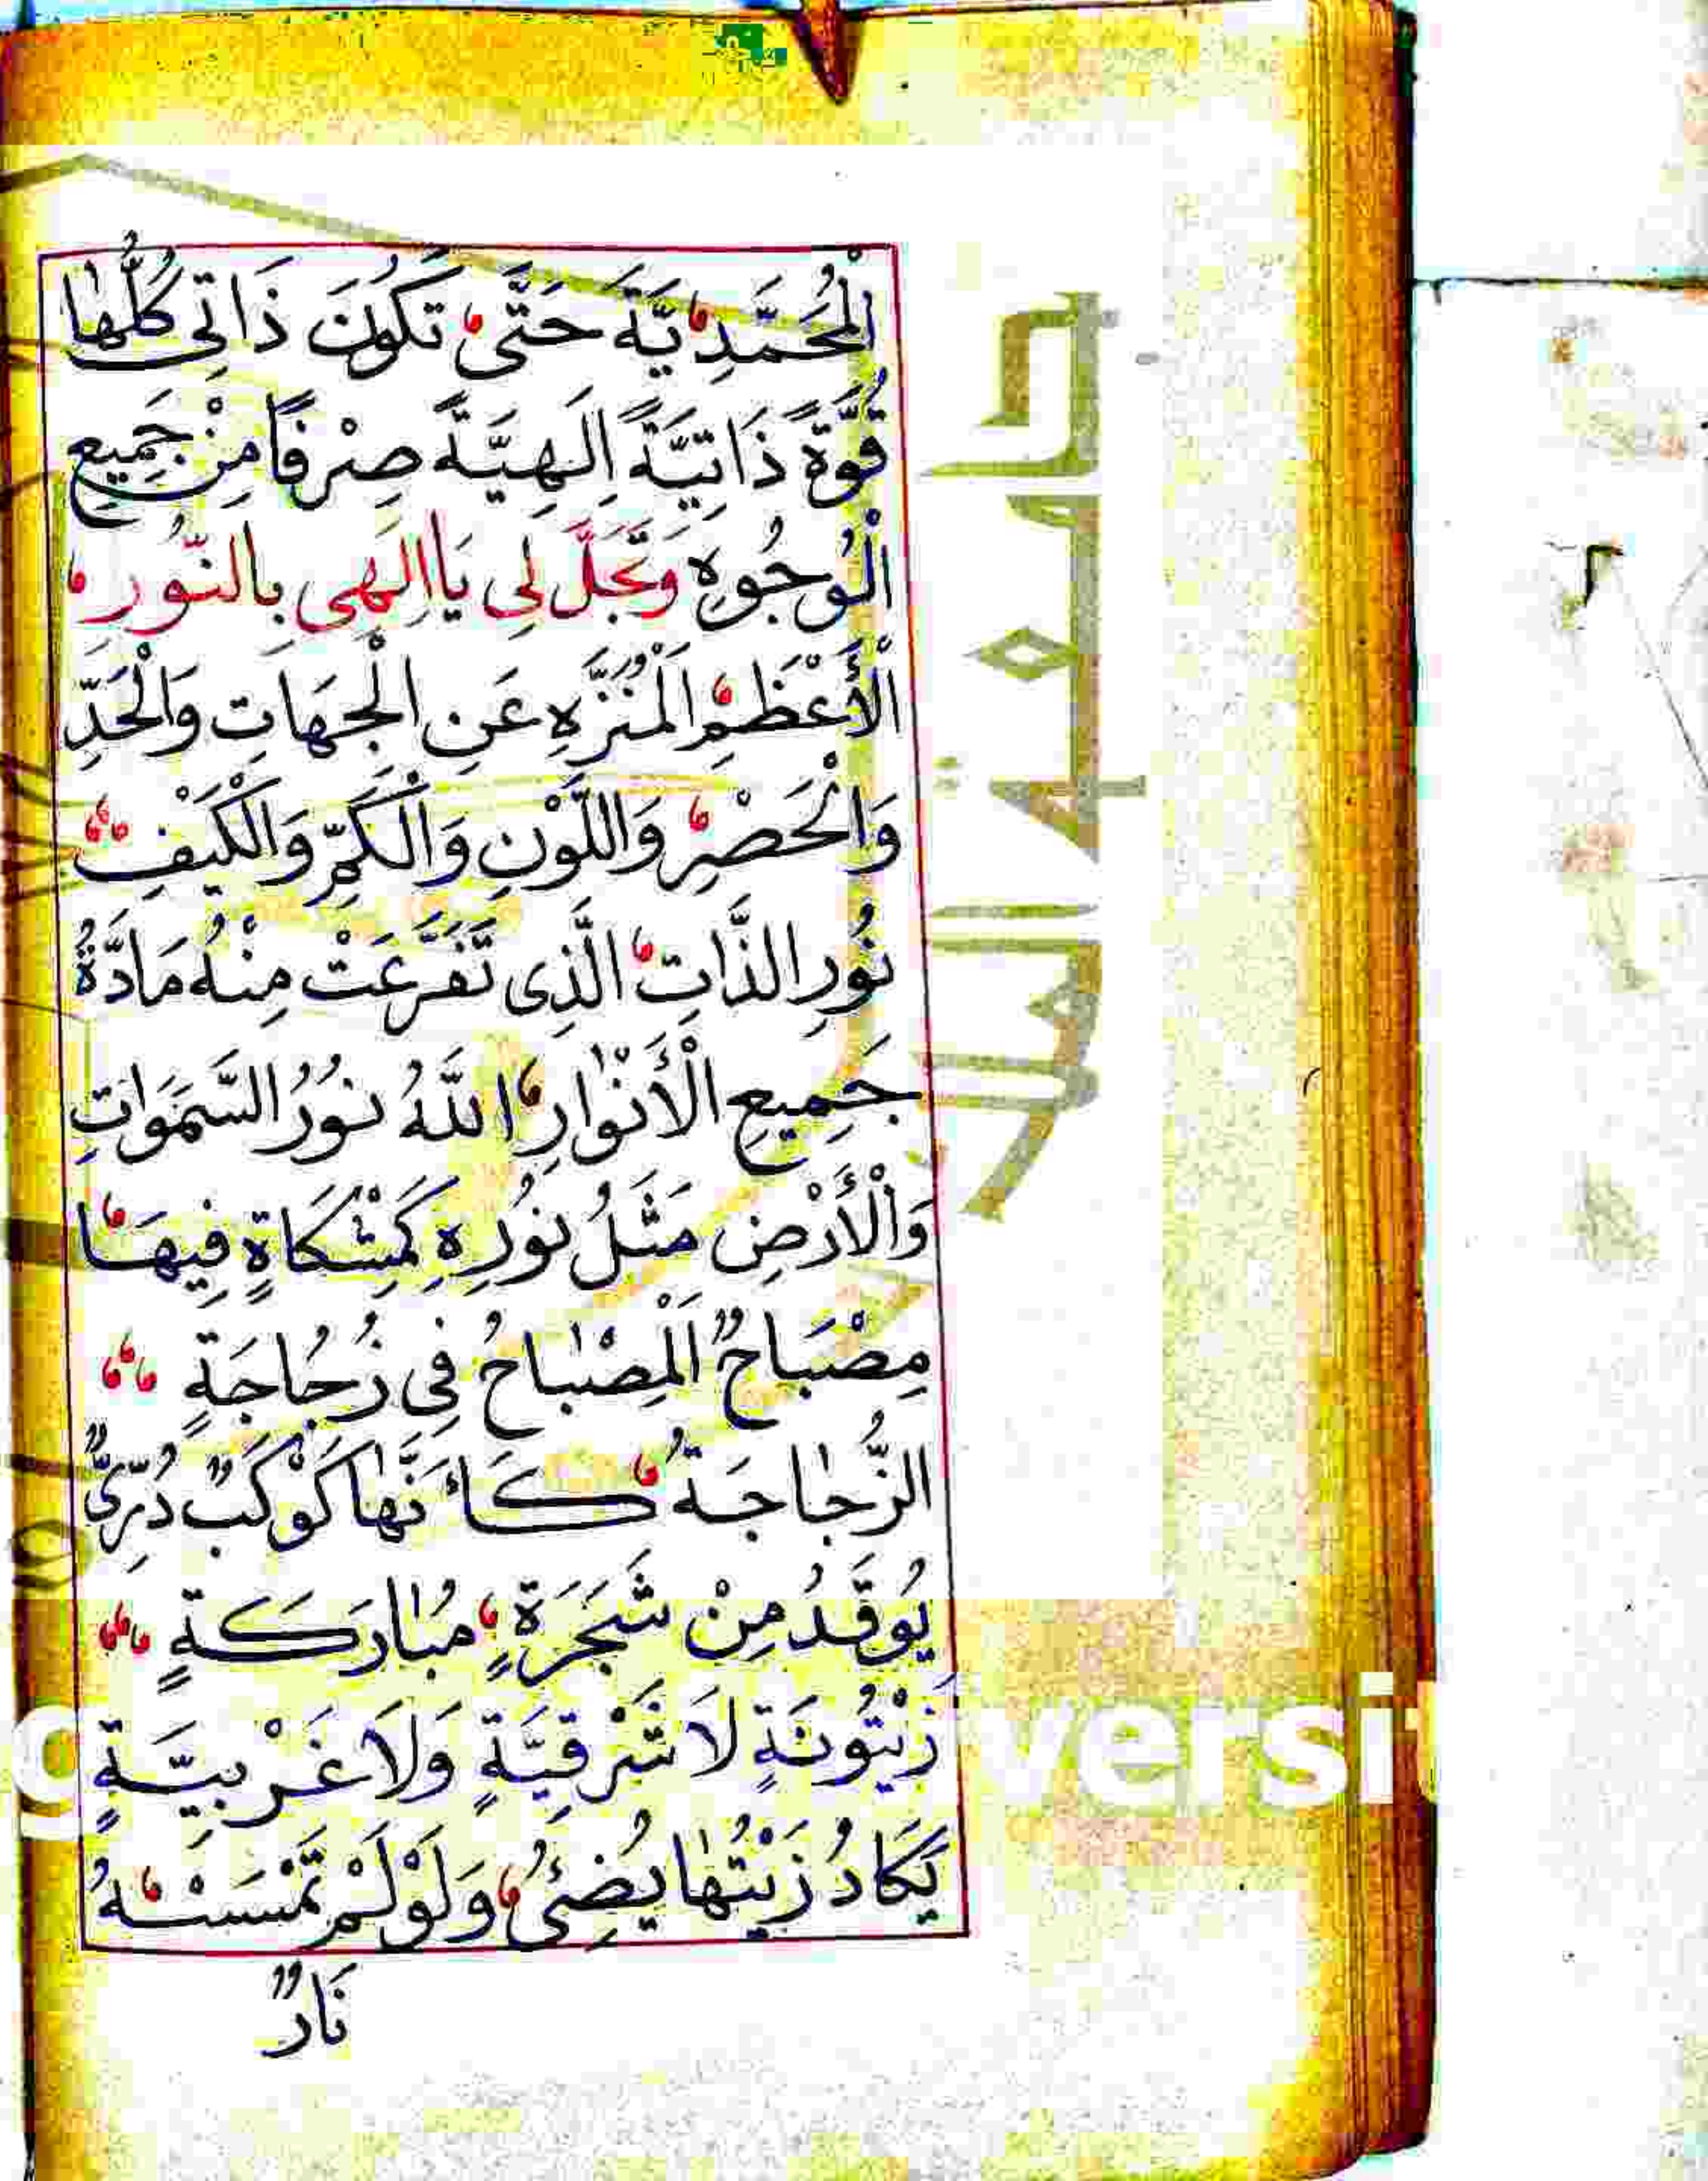 الْمُحَمَّدِيَّةَ حَتَّى تَكُونَ ذَاتِي كُلُّهَا
قُوَّةً ذَاتِيَّةً اِلَهِيَّةً صِرْفًا مِنْ جَمِيعِ
الْوُجُوهِ وَتَجَلَّ لِي يَا اِلَهِي بِالنُّورِ
الْأَعْظَمِ الْمُنَزَّهِ عَنِ الْجِهَاتِ وَالْحَدِّ
وَالْحَصْرِ وَاللَّوْنِ وَالْكَمِّ وَالْكَيْفِ
نُورِ الذَّاتِ الَّذِي تَفَرَّعَتْ مِنْهُ مَادَّةُ
جَمِيعِ الْأَنْوَارِ اللَّهُ نُورُ السَّمَوَاتِ
وَالْأَرْضِ مَثَلُ نُورِهِ كَمِشْكَاةٍ فِيهَا
مِصْبَاحٌ اَلْمِصْبَاحُ فِي زُجَاجَةٍ
الزُّجَاجَةُ كَأَنَّهَا كَوْكَبٌ دُرِّيٌّ
يُوقَدُ مِنْ شَجَرَةٍ مُبَارَكَةٍ
زَيْتُونَةٍ لَا شَرْقِيَّةٍ وَلَا غَرْبِيَّةٍ
يَكَادُ زَيْتُهَا يُضِئُ وَلَوْ لَمْ تَمْسَسْهُ
نَارٌ
جامعة الملك
versit